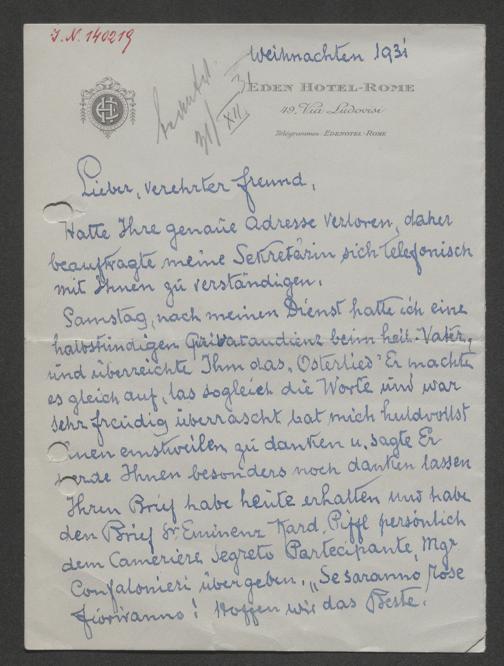 I.N. 140219
Weihnachten 1931
EDEN HOTEL-ROME
49, Via Ludovisi
Télégrammes: EDENOTEL-ROME
31/XII 31
Lieber, verehrter Freund,
Hatte Ihre genaue Adresse verloren, daher
beauftragte meine Sekretärin sich telefonisch
mit Ihnen zu verständigen.
Samstag, nach meinen Dienst hatte ich eine
halbstündigen Privataudienz beim heil. Vater,
und überreichte Ihm das „Osterlied" Er machte
es gleich auf, las sogleich die Worte und war
sehr freudig überrascht bat mich huldvollst
Ihnen einstweilen zu danken u. sagte Er
werde Ihnen besonders noch danken lassen
Ihren Brief habe heute erhalten und habe
den Brief Sr Eminenz Kard. Piffl persönlich
dem Cameriere Segreto Partecipante, Mgr
Confalonieri übergeben. „Se saranno rose
fioriranno! Hoffen wir das Beste.